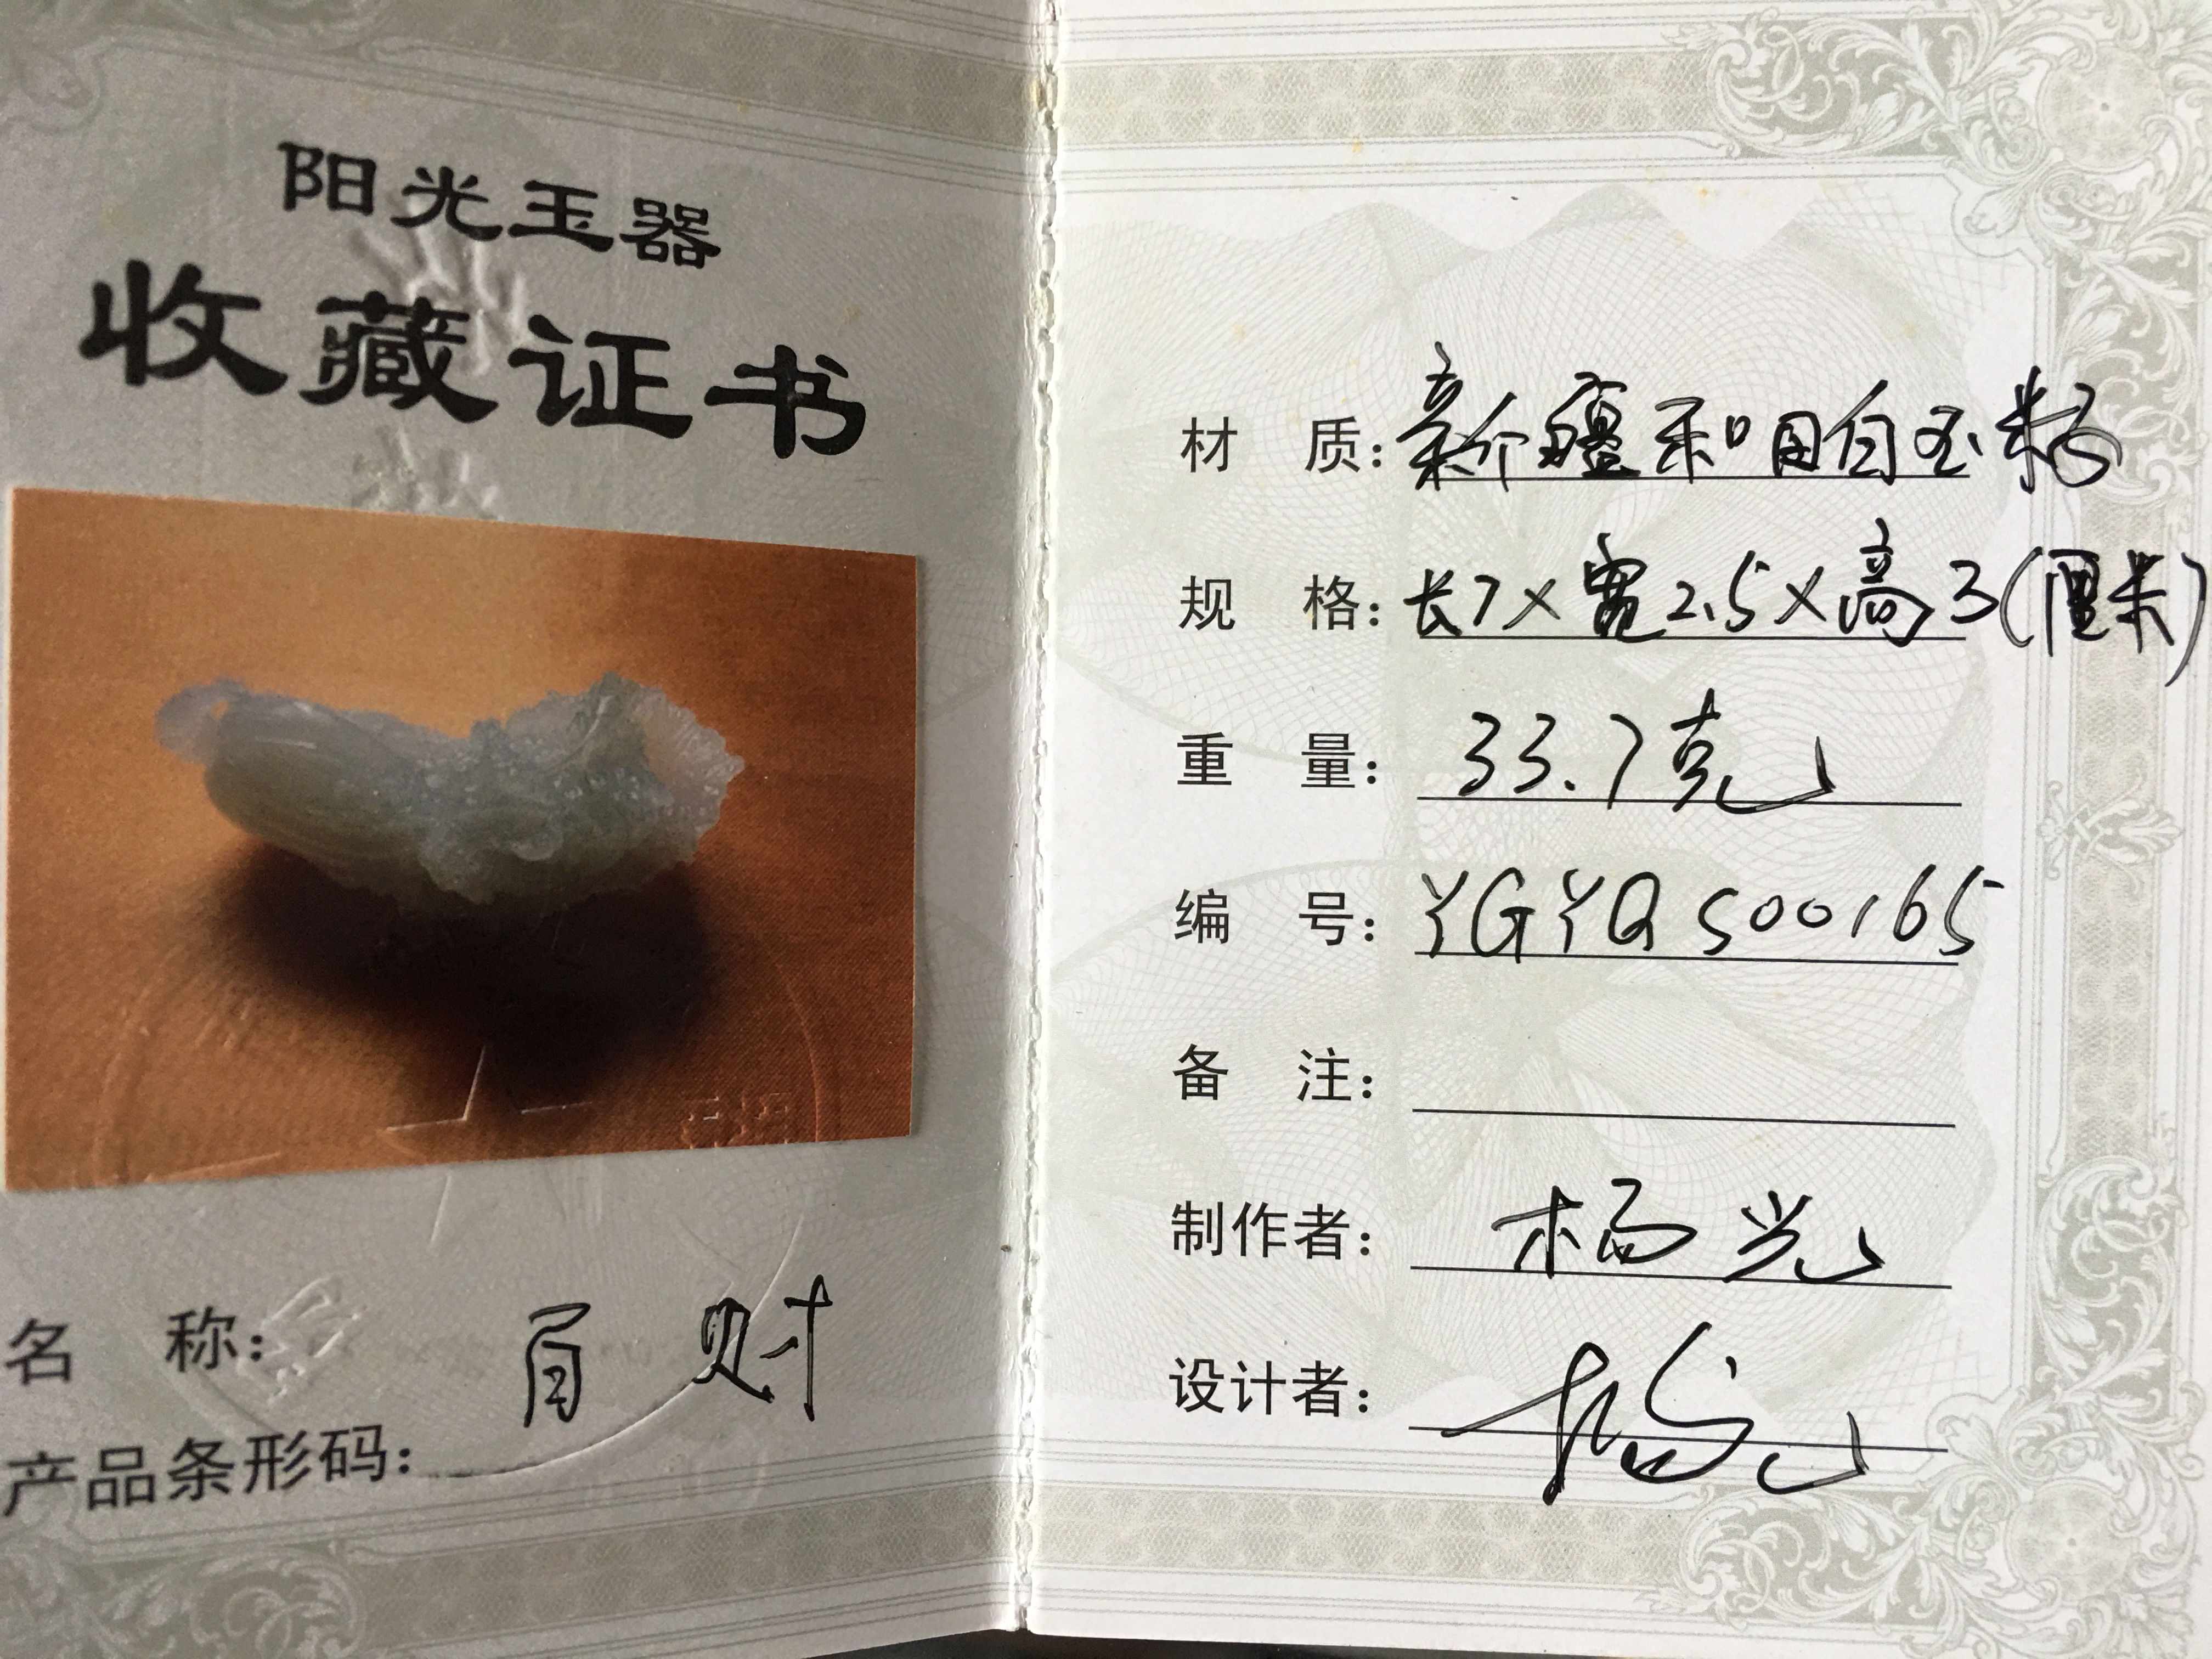 阳光玉器
收藏证书
名 称: 百财
产品条形码:
材 质: 新疆和田白玉籽
规 格: 长7×宽2.5×高3(厘米)
重 量: 33.7克
编 号: YGYQS00165
备 注:
制作者: 杨光
设计者: